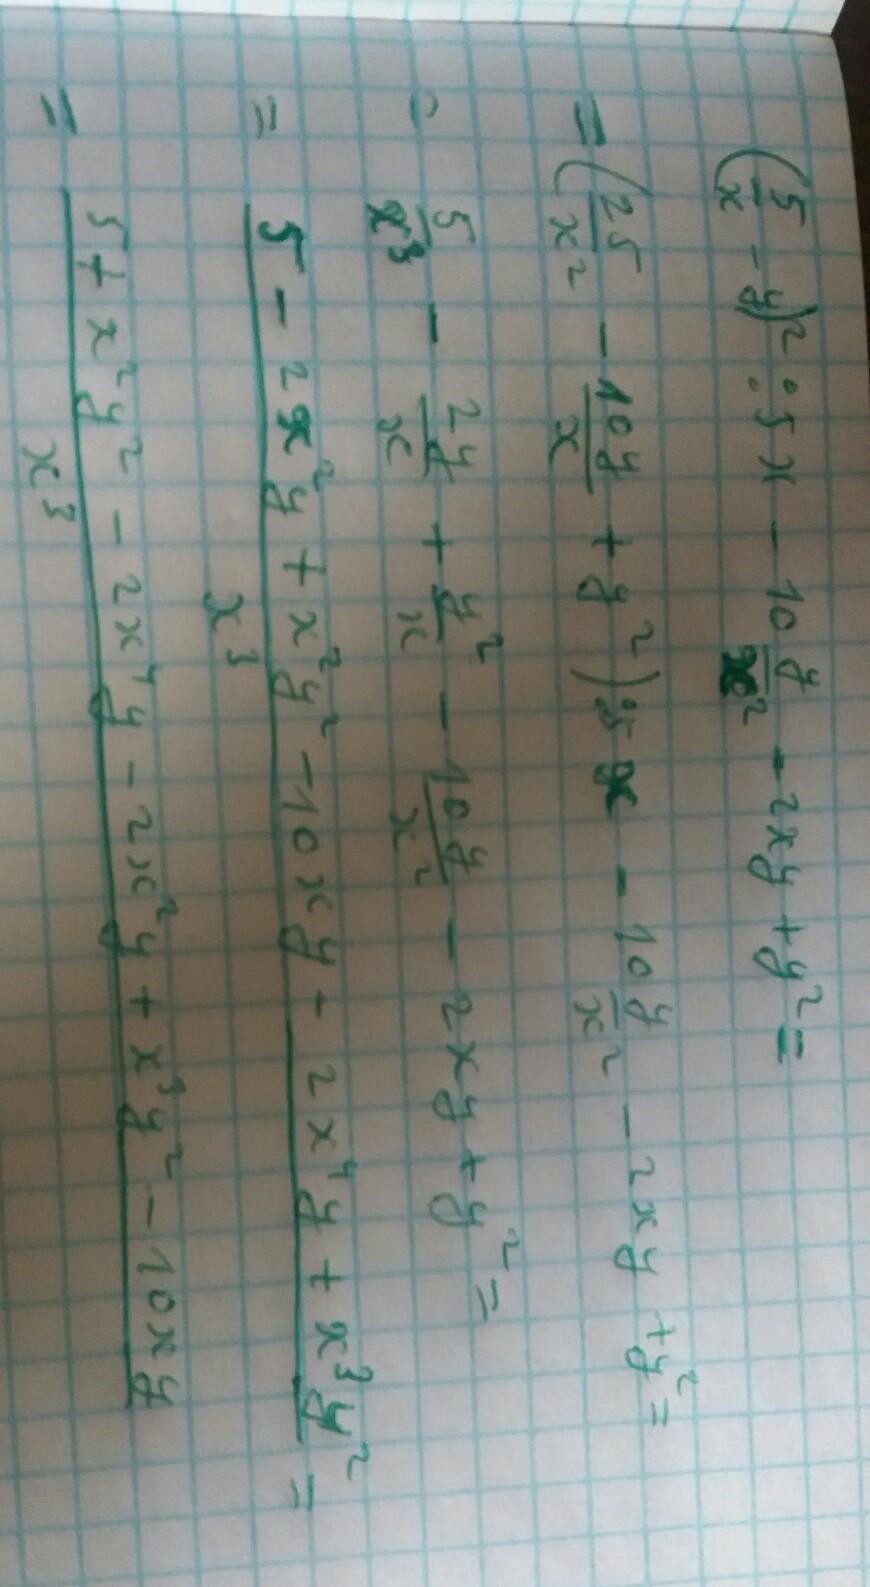 (5/x - y)² : 5x - 10y/x² - 2xy + y² =
= (25/x² - 10y/x + y²) : 5x - 10y/x² - 2xy + y² =
= 5/x³ - 2y/x + y²/x - 10y/x² - 2xy + y² =
= (5 - 2x²y + x²y² - 10xy - 2x⁴y + x³y²)/x³ =
= (5 + x²y² - 2x⁴y - 2x²y + x³y² - 10xy)/x³